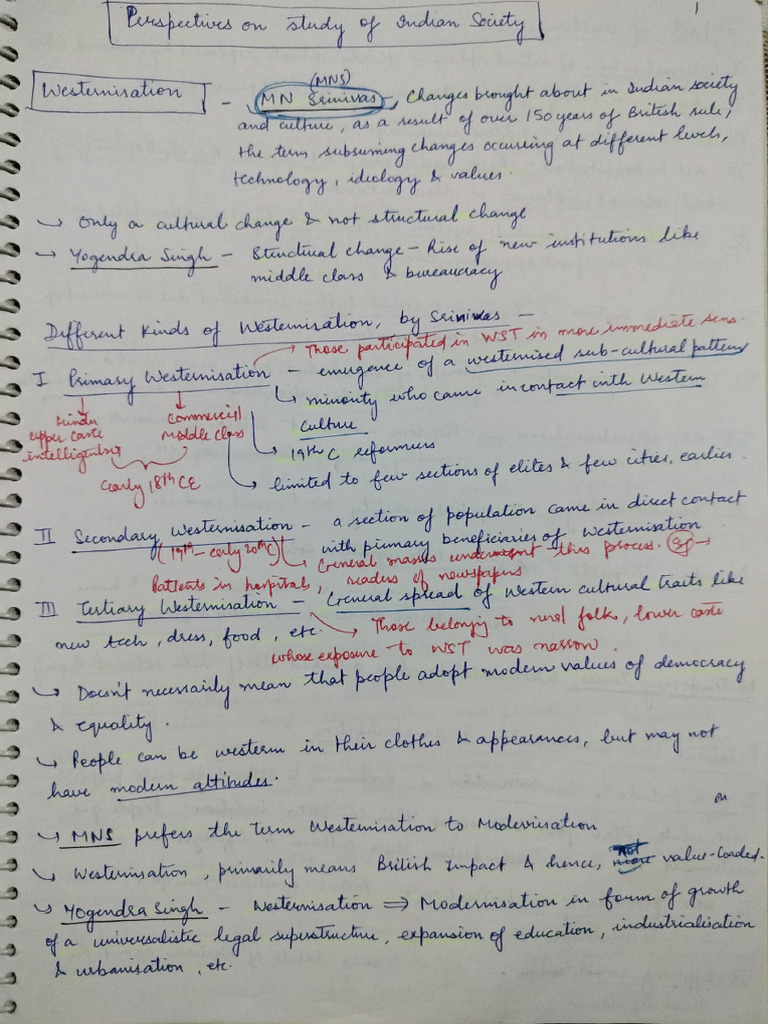 1
Perspectives on study of Indian Society
Westernisation - MN Srinivas - Changes brought about in Indian society
(MNS)
and culture, as a result of over 150 years of British rule,
the term subsuming changes occurring at different levels,
technology, ideology & values.
↳ Only a cultural change & not structural change
↳ Yogendra Singh - Structural change - Rise of new institutions like
middle class & bureaucracy
Different Kinds of Westernisation, by Srinivas -
→ Those participated in WST in more immediate sens.
I Primary Westernisation - emergence of a westernised sub-cultural pattern
↳ minority who came in contact with Western
culture
Hindu
upper caste
intelligentsia
commercial
middle class
early 18th CE
↳ 19th C reformers
↳ limited to few sections of elites & few cities, earlier.
II Secondary Westernisation - a section of population came in direct contact
with primary beneficiaries of Westernisation
(19th - early 20th C)
↳ General masses underwent this process. →
Patients in hospitals, readers of newspapers
III Tertiary Westernisation - General spread of Western cultural traits like
new tech, dress, food, etc.
→ Those belonging to rural folks, lower caste
whose exposure to WST was narrow.
↳ Doesn't necessarily mean that people adopt modern values of democracy
& equality.
↳ People can be western in their clothes & appearances, but may not
have modern attitudes.
↳ MNS prefers the term Westernisation to Modernisation
↳ Westernisation, primarily means British Impact & hence, not value-loaded.
↳ Yogendra Singh - Westernisation ⇒ Modernisation in form of growth
of a universalistic legal superstructure, expansion of education, industrialisation
& urbanisation, etc.